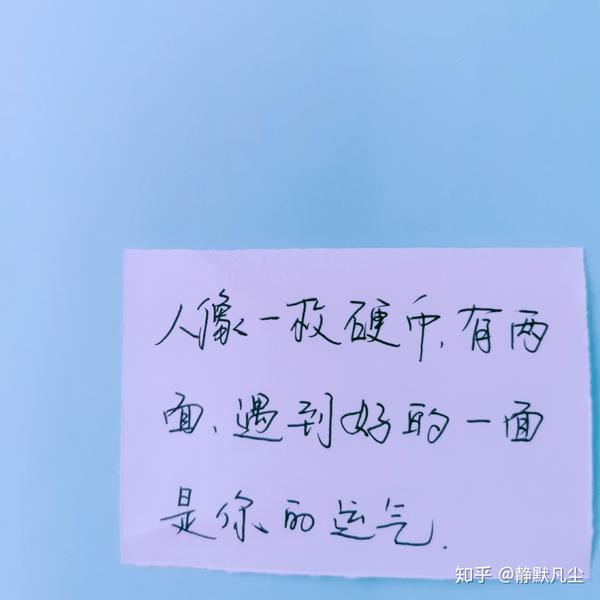 人像一枚硬币,有两
面、遇到好的一面
是你的运气.
知乎 @静默凡尘